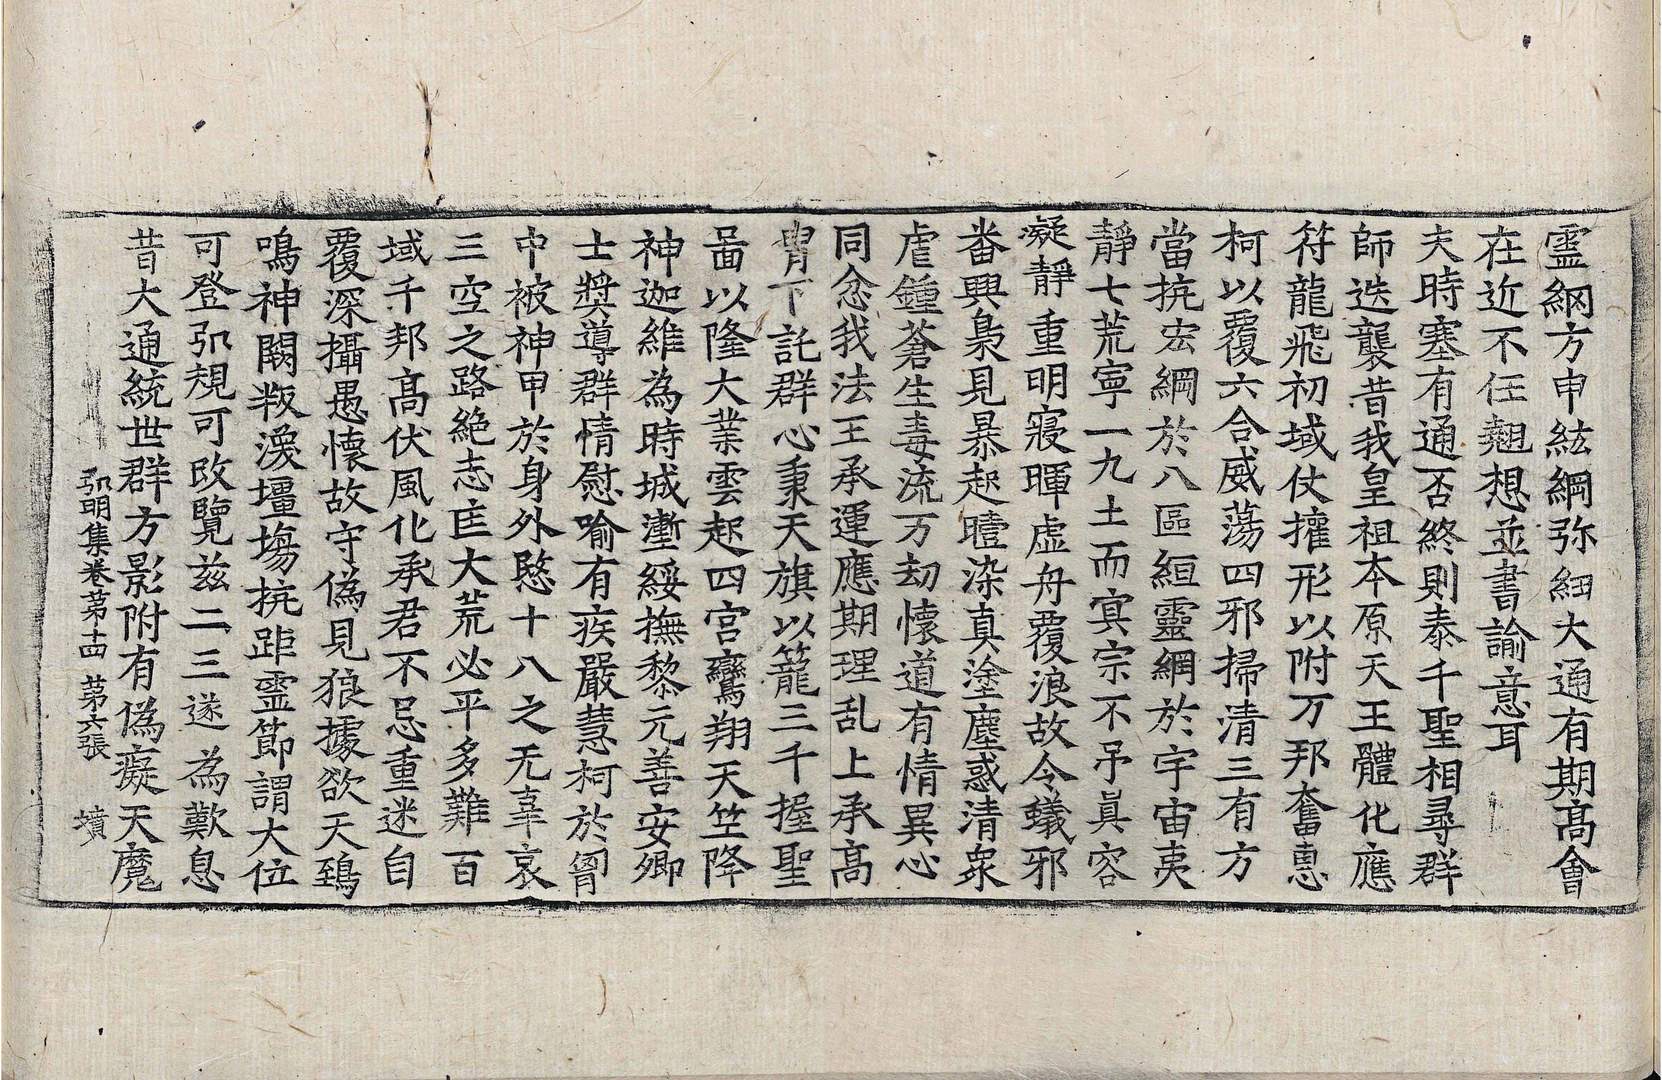 霊綱方申絃綱弥綑大通有期髙會
在近不任翹想並書諭意耳
夫時塞有通否終則泰千聖相尋群
師迭襲昔我皇祖本原天王體化應
符龍飛初域仗擁形以附万邦奮惠
柯以覆六合威蕩四邪掃清三有方
當抗宏綱於八區絙靈網於宇宙夷
靜七荒寧一九土而㝠宗不予真容
凝靜重明寢暉虚舟覆浪故令蟻邪
番興梟見暴起曀染真塗塵惑清衆
虐鍾蒼生毒流万劫懷道有情異心
同忿我法王承運應期理乱上承髙
胄下託群心秉天旗以籠三千握聖
啚以隆大業雲起四宮鸞翔天竺降
神迦維為時城壍綏撫黎元善安卿
士奬導群情慰喻有疾嚴慧柯於胷
中被神甲於身外愍十八之无辜哀
三空之路絶志㡯大荒必平多難百
域千邦髙伏風化承君不忌重迷自
覆深攝愚懷故守偽見狼據欲天鵄
鳴神闕叛渙壃場抗距霊節謂大位
可登弘規可改覽兹二三遂為歎息
昔大通統世群方影附有偽癡天魔
弘明集卷苐十四 苐六張 墳